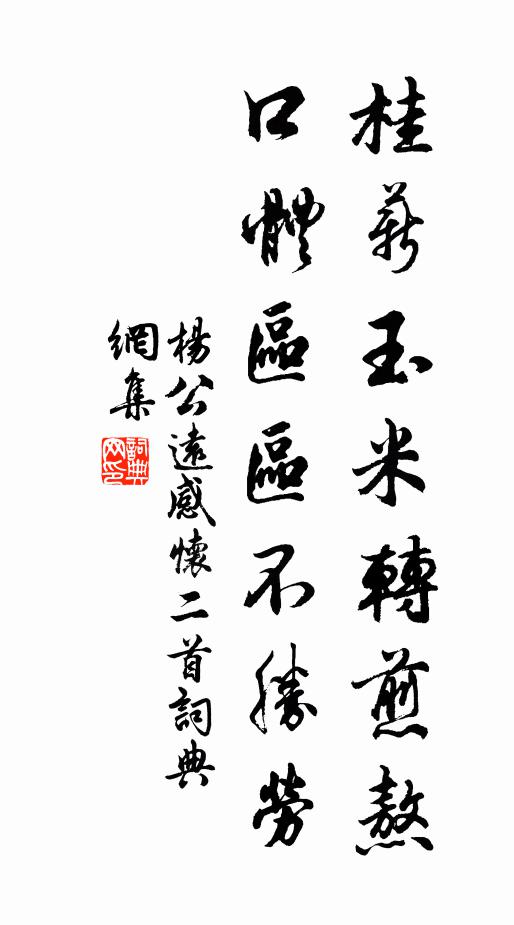 桂薪玉米轉煎熬
口體區區不勝勞
楊公遠感懷二首詞典
網集
詞典網印